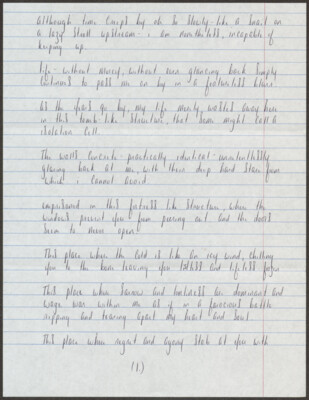 Although time creeps by oh so slowly - like a snail on
a lazy stroll upstream - i am nonetheless, incapable of
keeping up.
life - without mercy, without even glancing back simply
continues to pass me on by in a
As the years go by, my life merely, wastes away here
in this tomb-like structure, that some might call a
isolation cell.
The walls concrete - practically identical - unrelentlessly
glaring back at me, with their deep hard stare from
which i cannot avoid.
imprisoned in this fortress like structure, where the
windows prevent you from peering out and the doors
seem to never open!
This place where the cold is like an icy wind, chilling
you to the bone leaving you and lifeless
This place where sorrow and loneliness are dominant and
wage war within me as if in a ferocious battle
ripping and tearing apart my heart and soul.
This place where regret and agony stab at you with
(1)